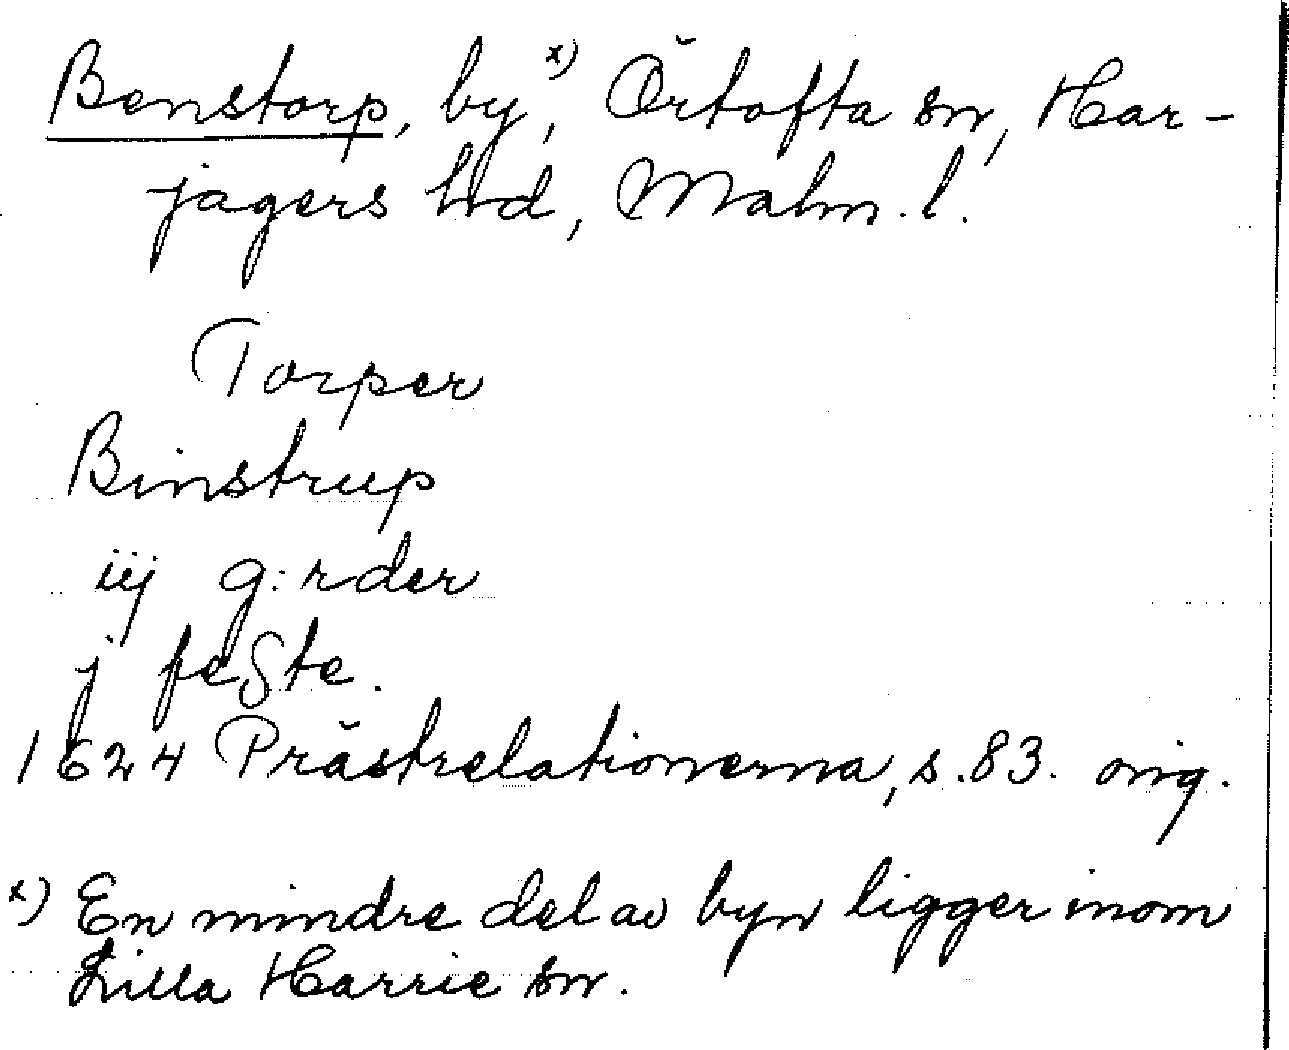 Benstorp, by,x) Örtofta sn, Har-
jagers hd, Malm. l.
Torper
Binstrup
iij g:rder
j feste.
1624 Prästrelationerna, s. 83. orig.
x) En mindre del av byn ligger inom
Lilla Harrie sn.